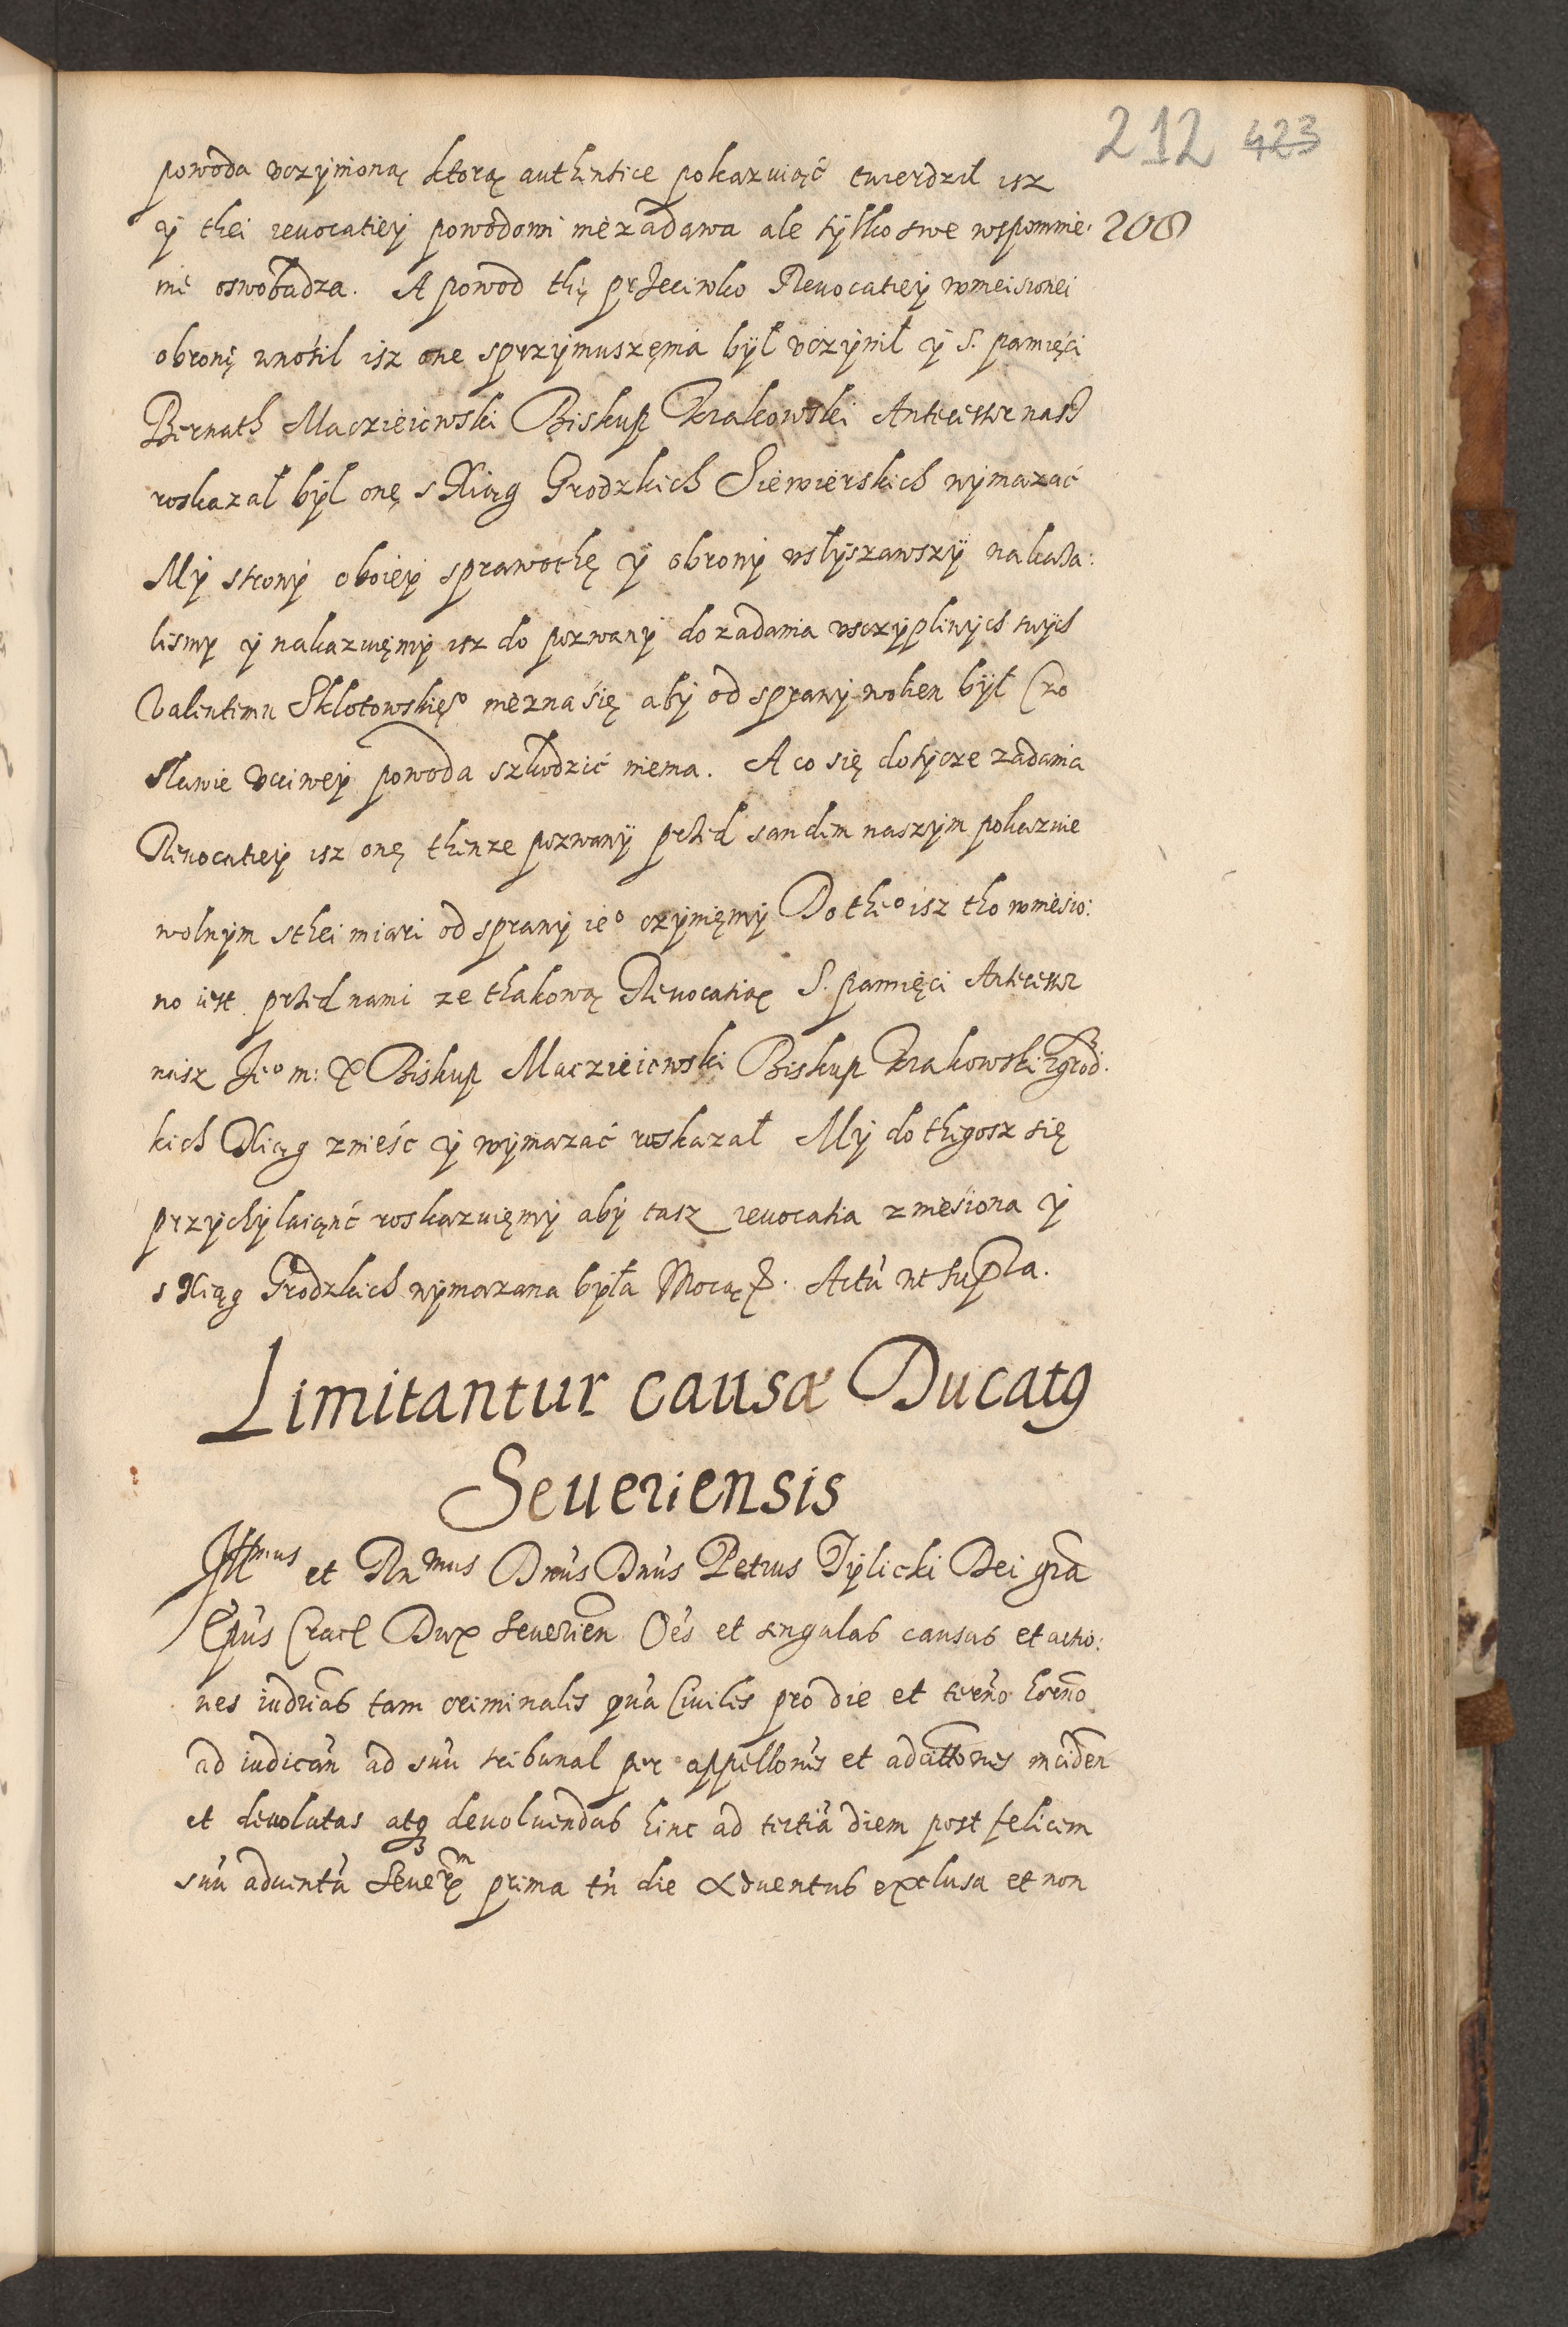 212 423
powoda vczynioną ktorą authentice pokazuiąć twierdził isz
y thei reuocatiey powodowi niezadawa ale tylko swe wspomnie: 208
nie oswobadza. A powod thę przeciwko Reuocatiey wnieisionei
obronę wnośil isz one sprzymuszęnia był vczynił y S. pamięći
Bernath Macziéiewski Biskup Krakowski Antecessor nasz
roskazał był onę s Xiąg Grodzkich Siewierskich wymazać
My strony oboiey sprawothę y obrony vsłyszawszy nakaza:
lismy y nakazuięmy isz do pozwany do zadania vsczypliwych swych
Valentemu Sklotowskieº niezna się aby od sprawy wolien był Czo
sławie vcciwey powoda szkodzić niema. A co się dotycze zadania
Reuocatiey isz onę thenze pozwany przed sandem naszym pokazuie
wolnym s thei miari od sprawy ieº czynięmy Do theº isz tho wniesio:
no iest przed nami ze thakową Reuocatią S. pamięći Antecessor
nasz Jeº m: X Biskup Macziéiewski Biskup Krakowski zgrod:
kich Xiąg znieść y wymazać roskazał My do thegosz się
przychylaiąnć roskazuięmy aby tasz reuocatia zniesiona y
s Xiąg Grodzkich wymazana była Mocą &. Actu ut supra.
Limitantur causæ Ducatꝰ
Seueriensis
Illmus et Rnmus Dnus Dnus Petrus Tylicki Dei gra
Epus Crac Dux Seuerien Oes et singulas causas et actio:
nes iudicias tam criminales qua Ciuiles pro die et termo hoerno
ad iudican ad suu tribunal per appellones et adcittones inciden
et deuolutas atqꝫ deuoluendas hinc ad tertia diem post felicem
suu aduentu Seuer prima tn die aduentus exclusa et non